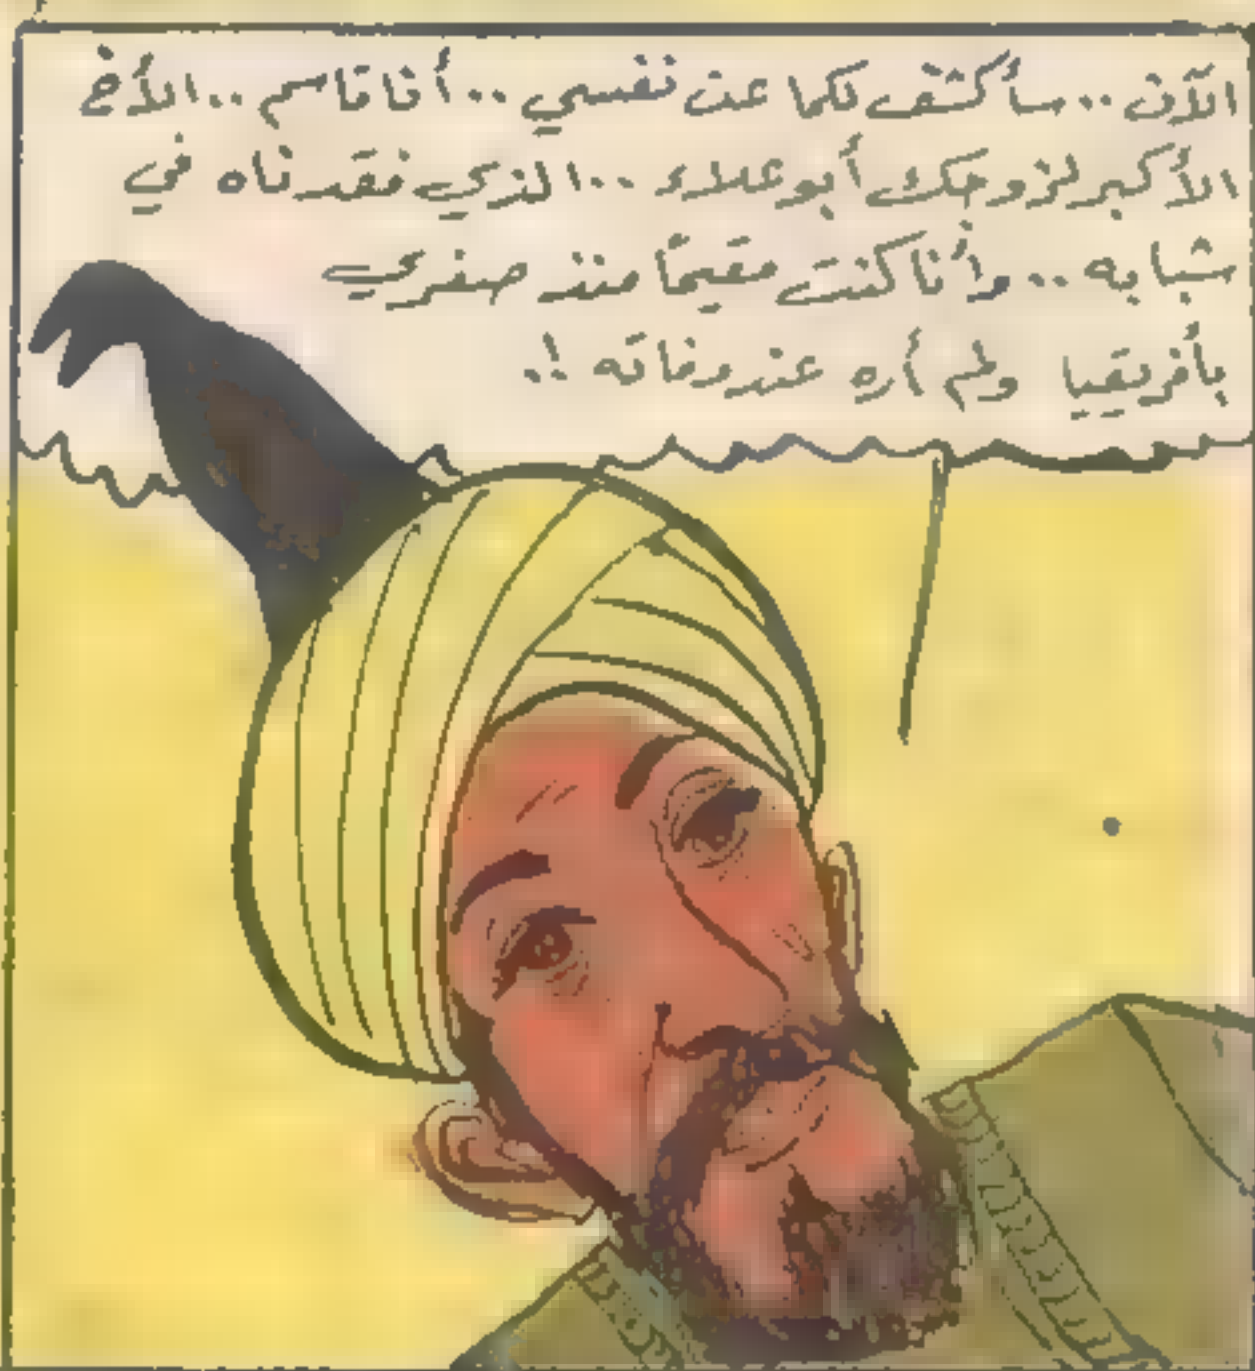 الآن .. سأكشف لكما عن نفسي .. أنا قاسم .. الأخ
الأكبر لزوجك أبو علاء .. الذي فقدناه في
شبابه .. وأنا كنت مقيماً منذ صغري
بأفريقيا ولم أره عند وفاته !.